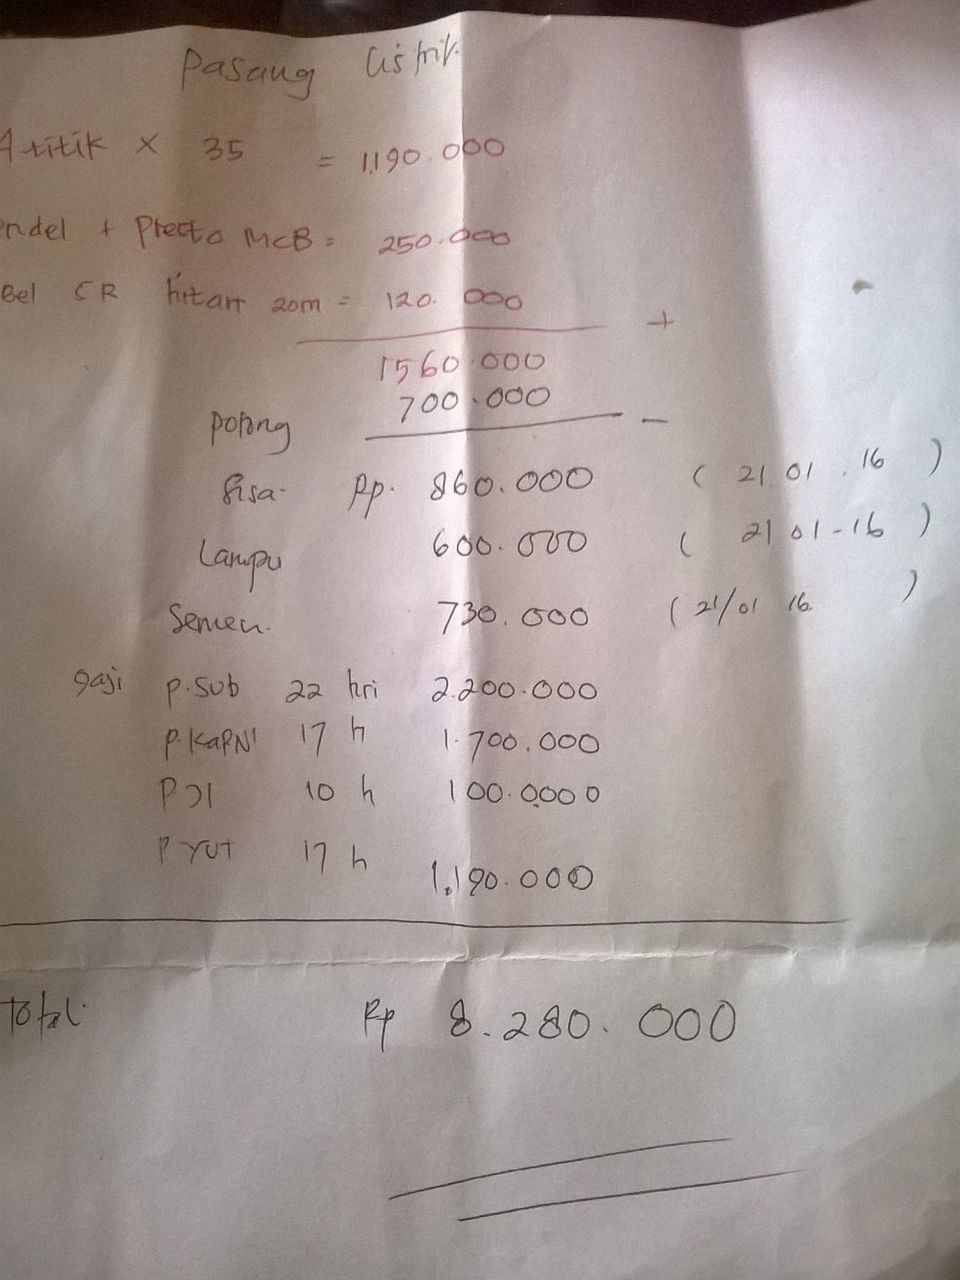 Pasang Listrik
4 titik x 35 = 1.190.000
ndel + Presto MCB = 250.000
Bel SR hitam 20m = 120.000
+
1560.000
Potong 700.000 -
Sisa- Rp. 860.000 ( 21.01.16 )
Lampu 600.000 ( 21 01-16 )
Semen. 730.000 ( 21/01 16. )
gaji P.Sub 22 hri 2.200.000
P.KaRNI 17 h 1.700.000
P JI 10 h 100.0000
P YUT 17 h 1.190.000
Total. Rp 8.280.000